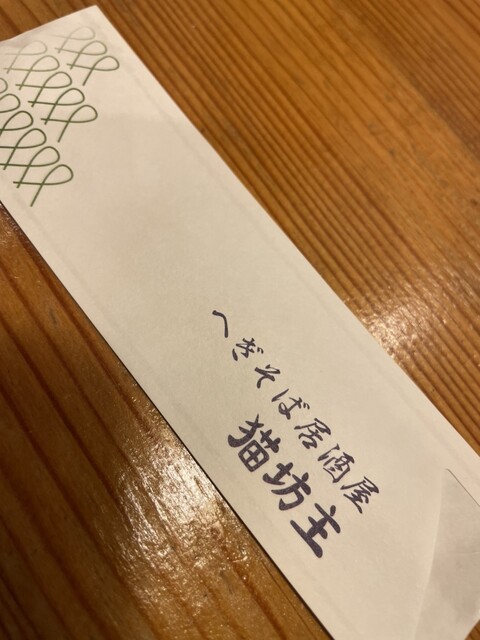 へぎそば居酒屋
猫坊主